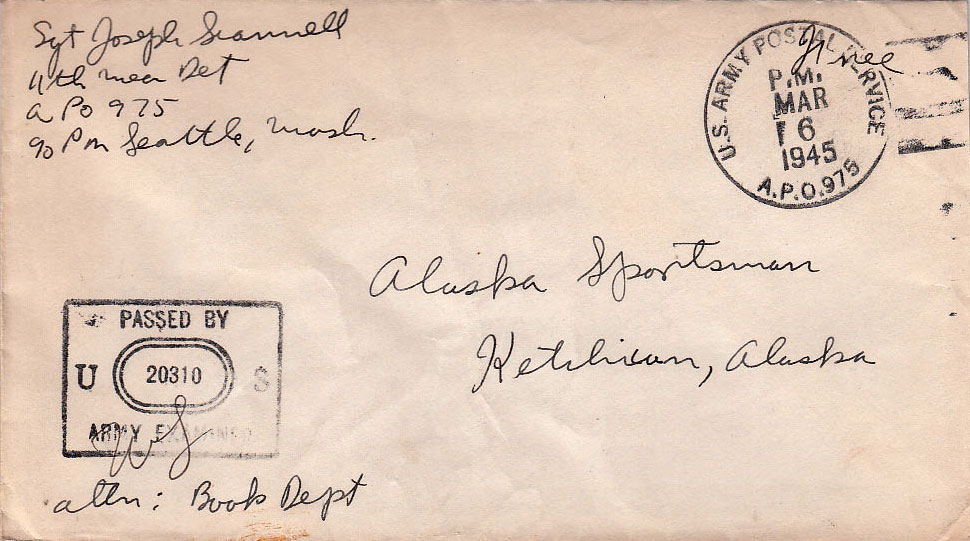 Sgt Joseph Scannell
11th Wea Det
A PO 975
℅ P M Seattle, Wash.
Free
U.S. ARMY POSTAL SERVICE
P.M.
MAR
6
1945
A.P.O. 975
Alaska Sportsman
Ketchikan, Alaska
PASSED BY
U 20310 S
ARMY EXAMINER
attn: Book Dept